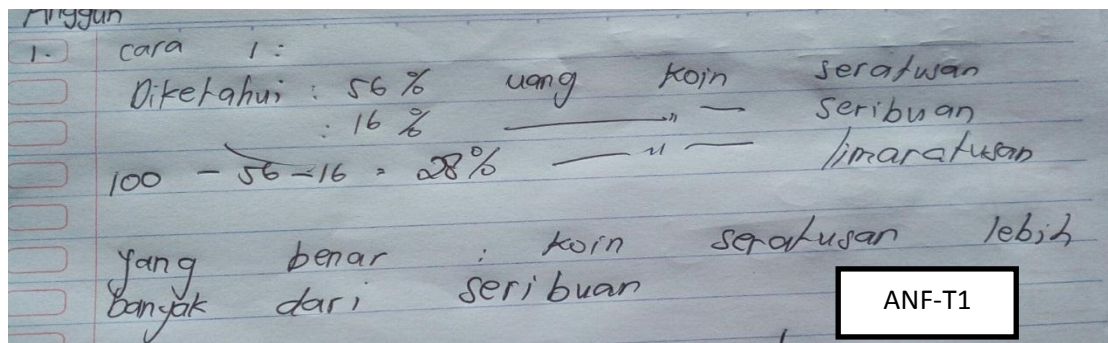 Anggun
1. cara 1 :
Diketahui : 56 % uang koin seratusan
: 16 % —— " — seribuan
100 - 56 - 16 = 28% —— " — limaratusan
yang benar : koin seratusan lebih
banyak dari seribuan
ANF-T1